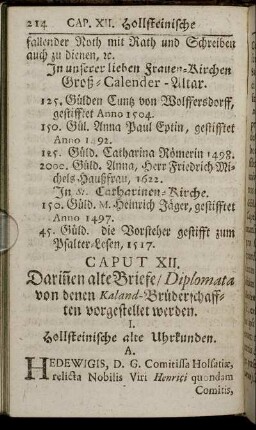 214 CAP. XII. Hollsteinische
fallender Noth mit Rath und Schreiben
auch zu dienen, ꝛc.
In unserer lieben Frauen-Kirchen
Groß-Calender-Altar.
125. Gülden Cuntz von Wolffersdorff,
gestifftet Anno 1504.
150. Gül. Anna Paul Eptin, gestifftet
Anno 1492.
125. Güld. Catharina Römerin 1498.
2000. Güld. Anna, Herr Friedrich Mi-
chels Haußfrau, 1622.
In St. Catharinen-Kirche.
150. Güld. M. Heinrich Jäger, gestifftet
Anno 1497.
45. Güld. die Vorsteher gestifft zum
Psalter-Lesen, 1517.
CAPUT XII.
Dariñen alte Briefe/ Diplomata
von denen Kaland-Brüderschaff-
ten vorgestellet werden.
I.
Hollsteinische alte Uhrkunden.
A.
HEDEWIGIS, D. G. Comitissa Holsatiæ,
relicta Nobilis Viri Henrici quondam
Comitis,